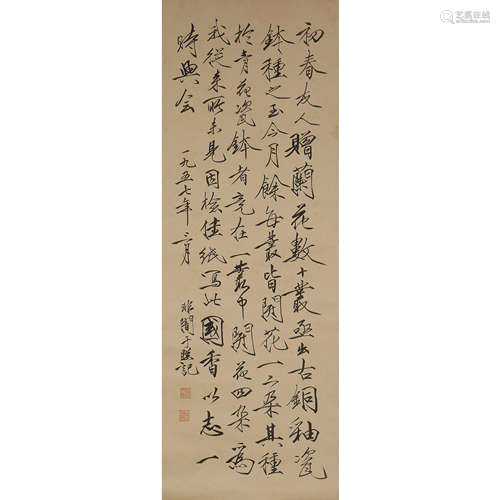 初春友人贈蘭花數十叢亟出古銅釉瓷
鉢種之至今月餘每叢皆開花一二朵其種
於青花瓷鉢者竟在一叢中開花四朵為
我從來所未見因檢佳紙寫此國香以志一
時興会
一九五七年三月
非闇于照記